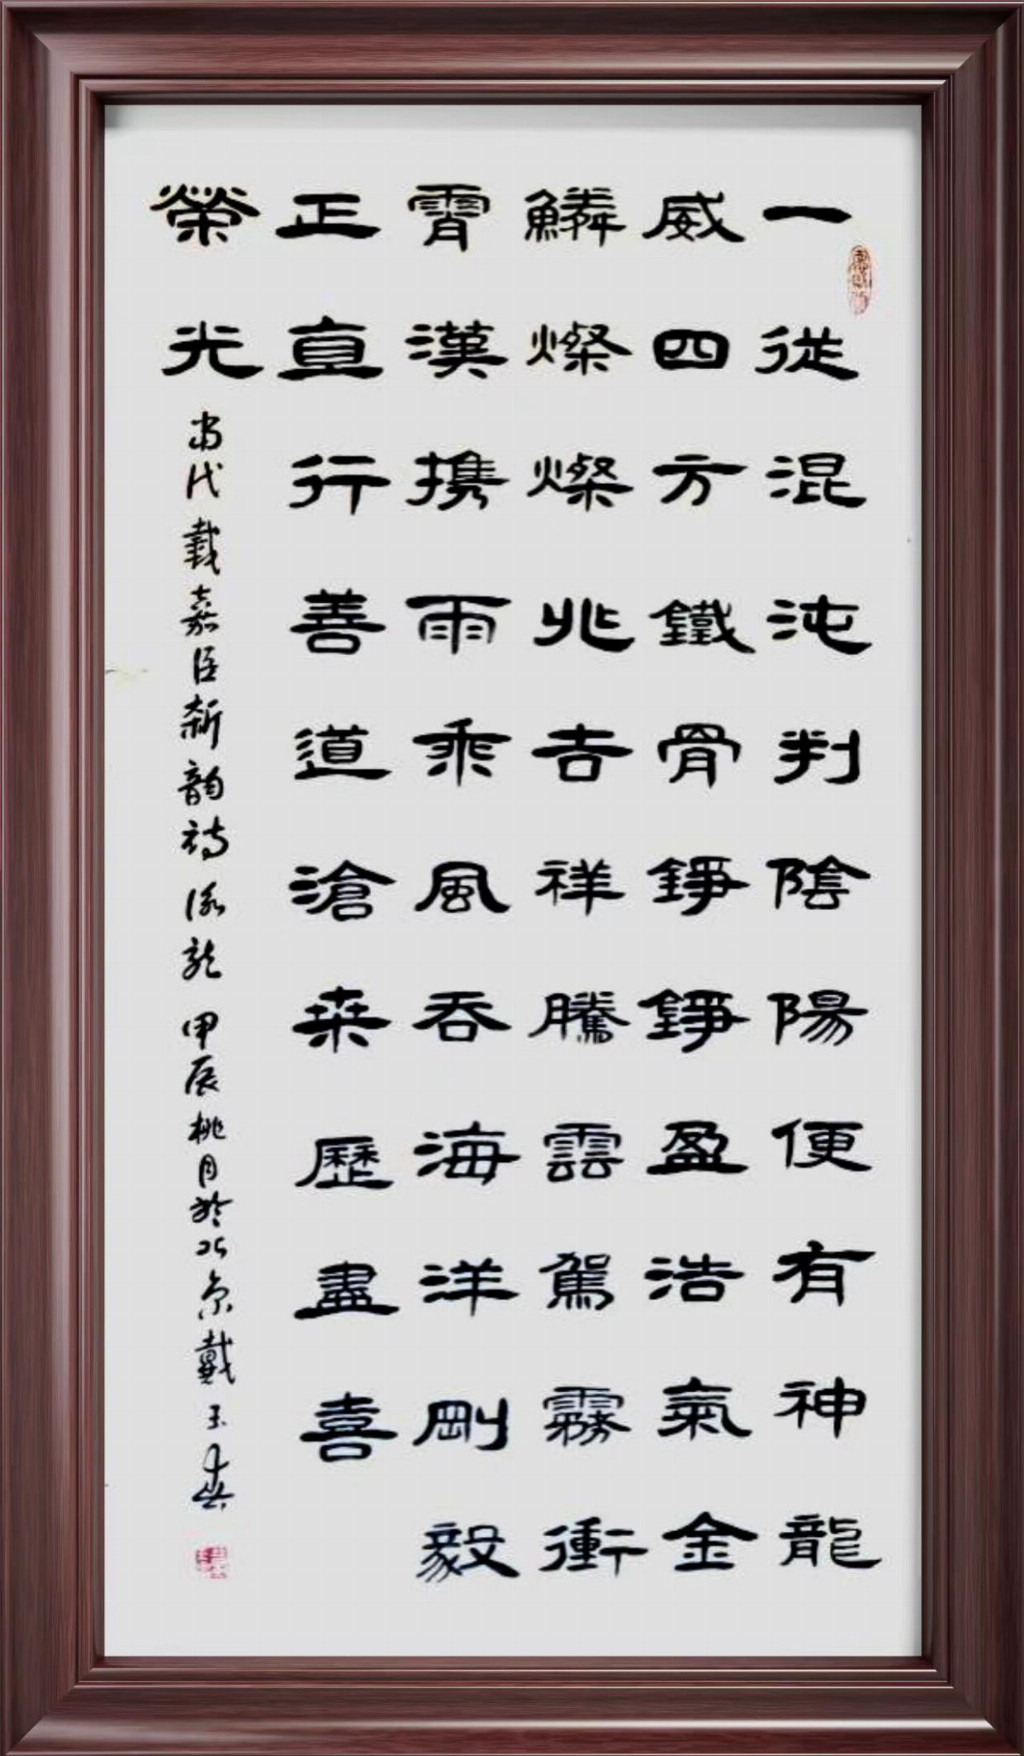 一從混沌判陰陽便有神龍
威四方鐵骨錚錚盈浩氣金
鱗燦燦兆吉祥騰雲駕霧衝
霄漢携雨乘風吞海洋剛毅
正直行善道滄桒歷盡喜
榮光
当代戴嘉臣新韵詩詠龍 甲辰桃月於北京戴玉